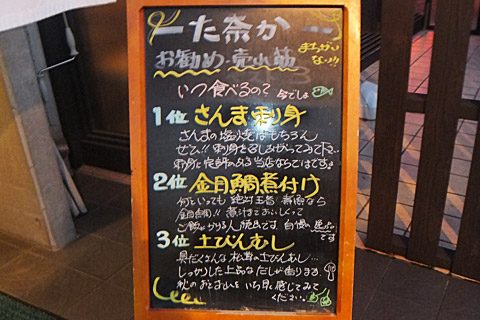 た奈か
まちがいない!!
お勧め・売れ筋
いつ食べるの? 今でしょ
1位 さんま刺身
さんまの塩焼はもちろん
ぜひ!! 刺身をためしがってみて下さい
刺身に定評のある当店ならではですよ
2位 金目鯛煮付け
何といっても絶対王者 新宿なら
金目鯛!! 煮汁までおいしくって
ご飯がかける人続出です 自慢の逸品です
3位 土びんむし
具だくさんな松茸の土びんむし…
しっかりした上品なだしが香ります
秋のおとずれをいち早く感じてみて
ください。